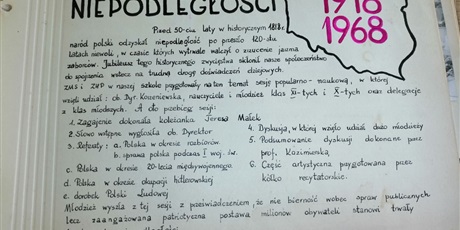 NIEPODLEGŁOŚCI
1918
1968
Przed 50-ciu laty w historycznym 1918 r.
naród polski odzyskał niepodległość po przeszło 120-stu
latach niewoli, w czasie których wytrwale walczył o zrzucenie jarzma
zaborców. Jubileusz tego historycznego zwycięstwa skłonił nasze społeczeństwo
do spojrzenia wstecz na trudną drogę doświadczeń dziejowych.
ZMS i ZHP w naszej szkole przygotowały na ten temat sesję popularno-naukową, w której
wzięli udział: ob. Dyr. Korzeniewska, nauczyciele i młodzież klas XI-tych i X-tych oraz delegacje
z klas młodszych. A oto przebieg sesji:
1. Zagajenie dokonała koleżanka Teresa Małek
2. Słowo wstępne wygłosiła ob. Dyrektor
3. Referaty: a. Polska w okresie rozbiorów.
b. sprawa polska podczas I woj. św.
c. Polska w okresie 20-lecia międzywojennego
d. Polska w okresie okupacji hitlerowskiej
e. dorobek Polski Ludowej
4. Dyskusja, w której wzięło udział dużo młodzieży
5. Podsumowanie dyskusji dokonane przez
prof. Kazimierską
6. Część artystyczna przygotowana przez
kółko recytatorskie.
Młodzież wyszła z tej sesji z przeświadczeniem, że nie bierność wobec spraw publicznych
lecz zaangażowana patriotyczna postawa milionów obywateli stanowi trwały